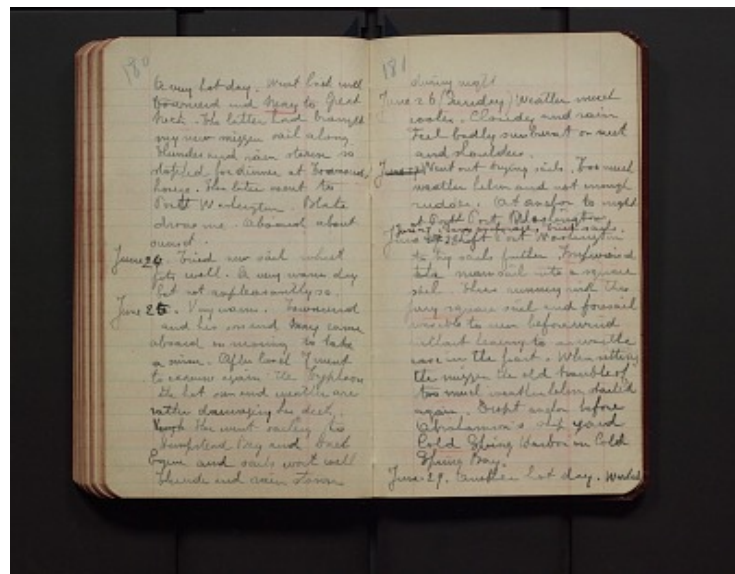 180
A very hot day. Went back with
Townsend and Nany to Great
Neck. The latter had brought
my new mizzen sail along.
Thunder and rain storm so
stopped for dinner at Townsend
house. Then later went to
Port Washington. Blake
drove me. Aboard about
sunset.
June 24. Tried new sail which
fits well. A very warm day
but not unpleasantly so.
June 25. Very warm. Townsend
and his son and Nany came
aboard in morning to take
a swim. After lunch I went
to again. The Typhoon
the hot sun and weather are
rather damaging her deck.
Then went sailing to
Hempstead Bay and back
Engine and sails work well
Thunder and rain storm
181
during night
June 26 (Tuesday) Weather much
cooler. Cloudy and rain
Feel badly sunburnt on neck
and shoulders.
June 27 Went out trying sails. Too much
weather helm and not enough
rudder. At anchor to night
at Port Washington
June 28 left Port Washington
to try sails further. Improvised
the main sail into a square
sail. When running and this
jury square sail and foresail
possible to run before wind
without
. When setting
the mizzen the old trouble of
too much weather helm started
again. Dropt anchor before
Abrahamson's ship yard
Cold Spring Harbor in Cold
Spring Bay.
June 29. Another hot day. Worked